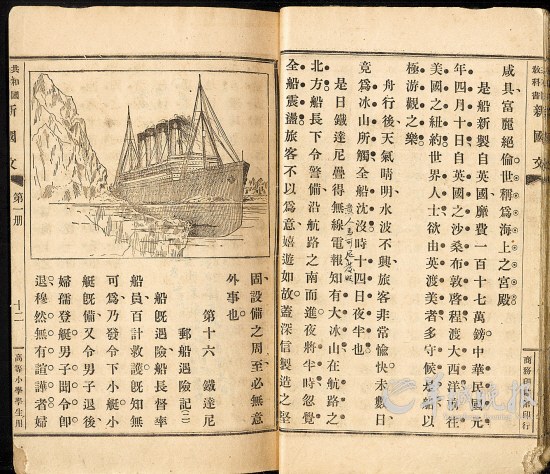 教科書 新國文 商務印書館印行
咸具富麗絕倫世稱爲海上之宮殿
是船新製自英國靡費一百十七萬鎊中華民國元
年四月十日自英國之沙桑布敦啓程渡大西洋前往
美國之紐約世界人士欲由英渡美者多守候船以
極游觀之樂
舟行後天氣晴明水波不興旅客非常愉快未數日
竟爲冰山所觸全船沈沒時十四日夜半也
是日鐵達尼疊得無線電報知有大冰山在航路之
北方船長下令警備沿航路之南而進夜將半時忽覺
全船震盪旅客不以爲意嬉遊如故蓋深信製造之堅
固設備之周至必無意
外事也
第十六 鐵達尼
郵船遇險記(二)
船既遇險船長督率
船員百計救護既知無
可爲乃發令下小艇小
艇既備又令男子退後
婦孺登艇男子聞令卽
退穆然無有諠譁者婦
共和國 新國文 第一册 十二 高等小學學生用